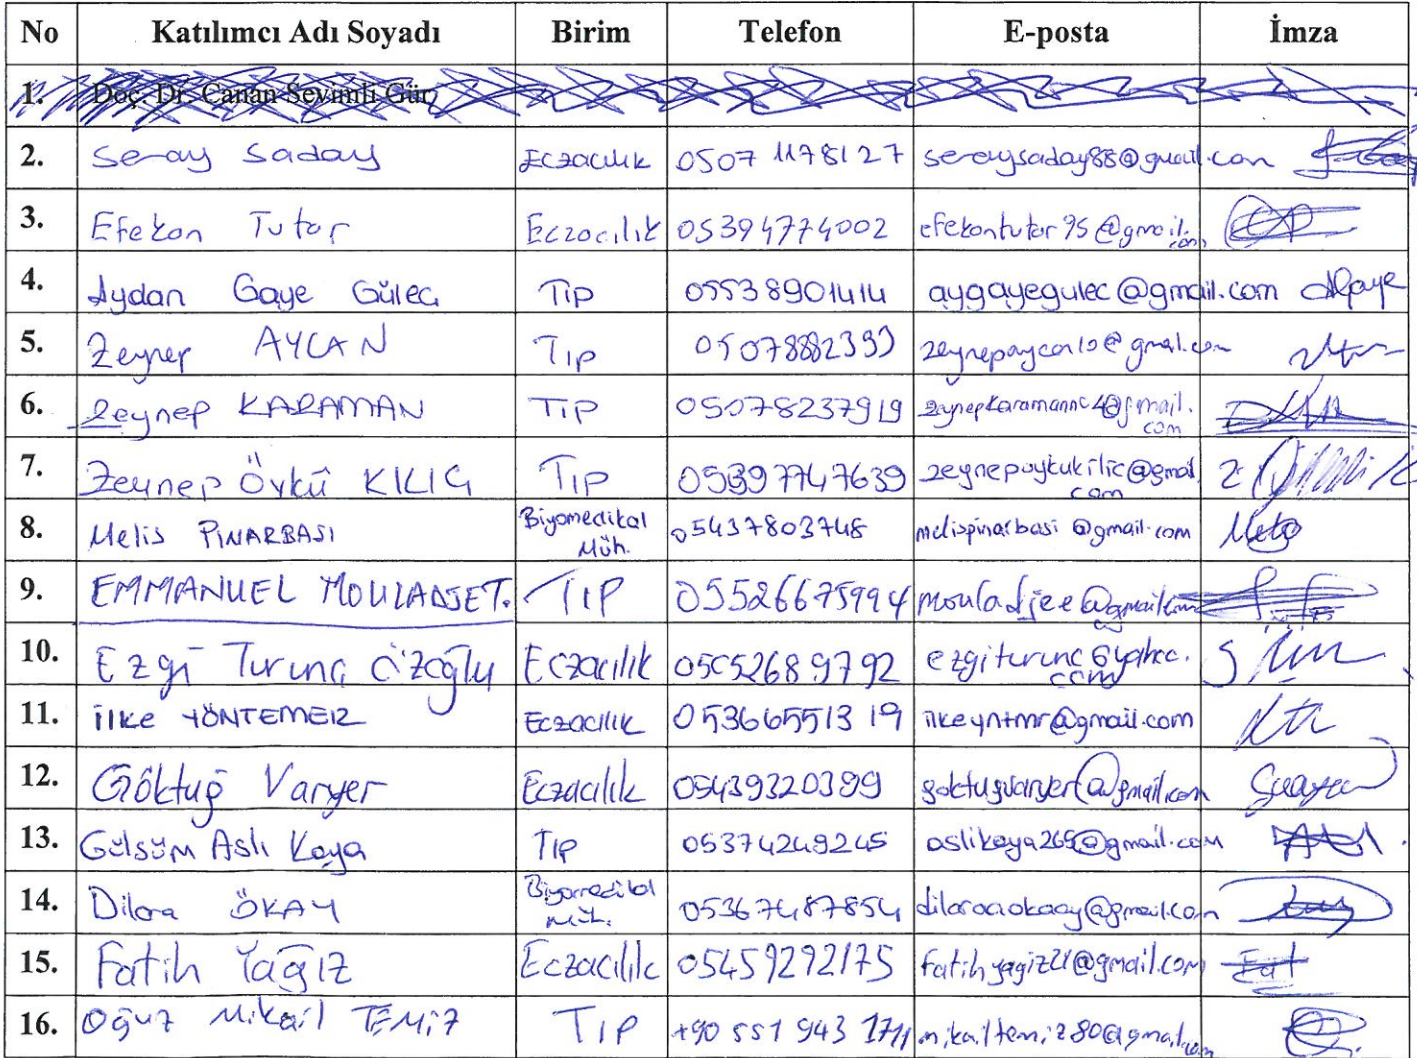 No Katılımcı Adı Soyadı Birim Telefon E-posta İmza
1. Doç. Dr. Canan Sevimli Gür
2. Seray Saday Eczacılık 0507 1178127 seraysaday88@gmail.com
3. Efekan Tutar Eczacılık 05394774002 efekantutar95@gmail.com
4. Aydan Gaye Güleç Tıp 05538901414 aygayegulec@gmail.com
5. Zeynep AYCAN Tıp 05078882399
6. Zeynep KARAMAN TIP 05078237919
7. Zeynep Öykü KILIÇ TIP 05397747639 zeynepoykukilic@gmail.com
8. Melis PINARBAŞI Biyomedikal Müh. 05437803748 melispinarbasi@gmail.com
9. EMMANUEL TIP 05526675994
10. Ezgi Turunç Özoğlu Eczacılık 05052689792 ezgiturunc@yahoo.com
11. İlke YÖNTEMER Eczacılık 05366551319 ilkeyntmr@gmail.com
12. Göktuğ Varyer Eczacılık 05439320399 goktugvaryer@gmail.com
13. Gülsüm Aslı Kaya Tıp 05374249245 aslikaya265@gmail.com
14. Dilara ÖKAY Biyomedikal Müh. 05367487854
15. Fatih Yağız Eczacılık 05459292175 fatihyagiz21@gmail.com
16. Oğuz Mikail TEMİZ TIP +90 551 943 1711 mikailtemiz80@gmail.com